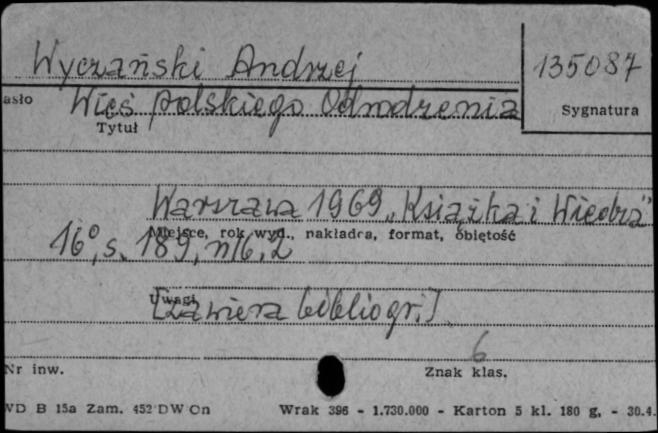 Wyczański Andrzej
135087
asło Wieś polskiego Odrodzenia
Tytuł
Sygnatura
Warszawa 1969 „Książka i Wiedza"
Miejsce, rok wyd., nakładca, format, objętość
16°, s. 189, nlb, 2
Uwagi
[zawiera bibliogr.]
6
Nr inw.
Znak klas.
WD B 15a Zam. 452 DW On Wrak 396 - 1.730.000 - Karton 5 kl. 180 g. - 30.4.